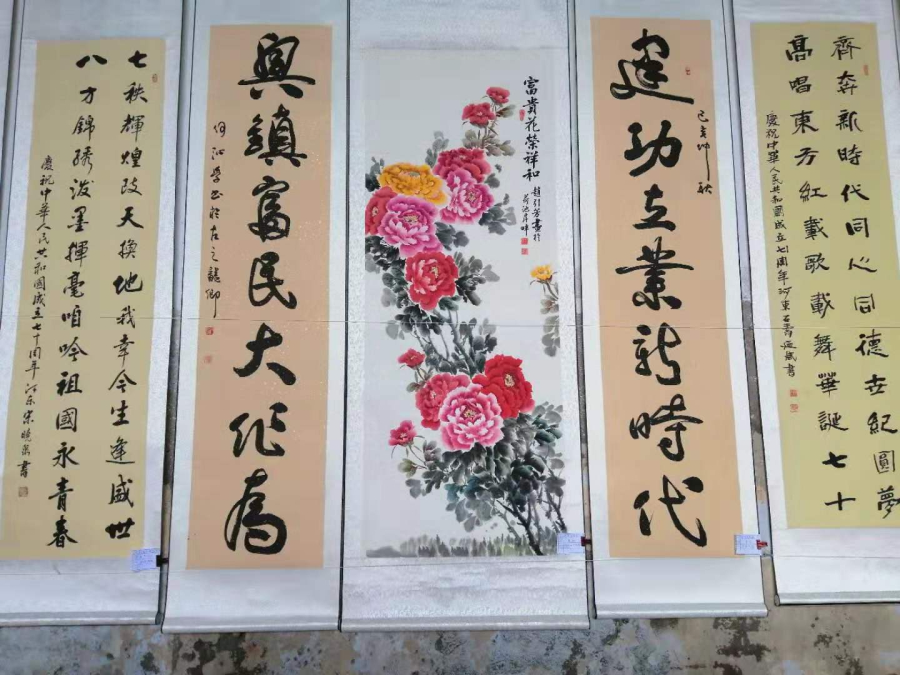 齊奔新時代同心同德世紀圓夢
高唱東方紅載歌載舞華誕七十
慶祝中華人民共和國成立七十周年河東
己亥仲秋
建功立業新時代
富貴花榮祥和
趙引芳畫於
荷池岸畔
興鎮富民大作為
於古之龍鄉
七秩輝煌改天換地我幸今生逢盛世
八方錦綉潑墨揮毫咱吟祖國永青春
慶祝中華人民共和國成立七十周年河東宋曉榮書